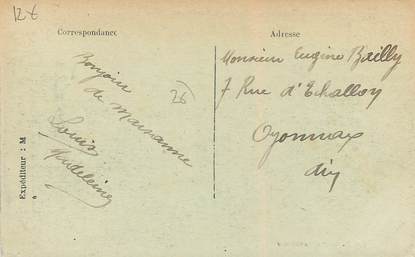 12 €
Correspondance
Adresse
Bonjour
de Marsanne
Louis
Madeleine
26
Monsieur Eugène Bailly
7 Rue d'Echallon
Oyonnax
Ain
Expéditeur : M